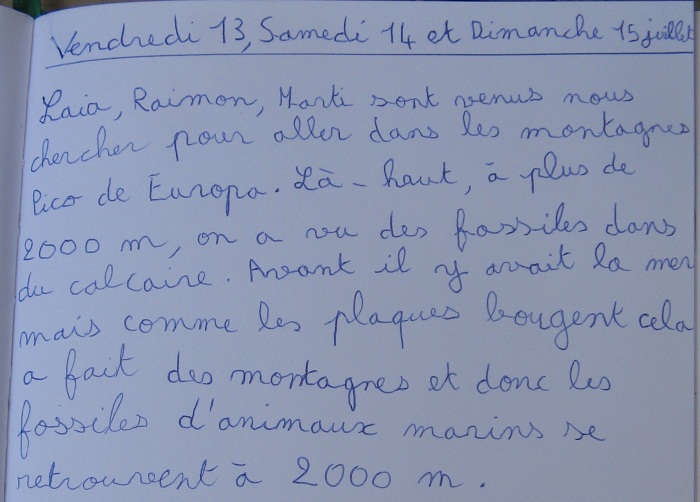 Vendredi 13, Samedi 14 et Dimanche 15 juillet
Laia, Raimon, Marti sont venus nous
chercher pour aller dans les montagnes
Pico de Europa. Là-haut, à plus de
2000 m, on a vu des fossiles dans
du calcaire. Avant il y avait la mer
mais comme les plaques bougent cela
a fait des montagnes et donc les
fossiles d'animaux marins se
retrouvent à 2000 m.